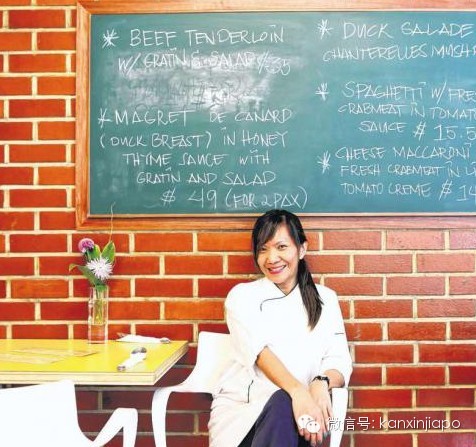 * BEEF TENDERLOIN
W/ GRATIN & SALAD $35
* MAGRET DE CANARD
(DUCK BREAST) IN HONEY
THYME SAUCE WITH
GRATIN AND SALAD
$49 (FOR 2 PAX)
* DUCK SALADE
CHANTERELLES MUSH
* SPAGHETTI W/ FRE
CRABMEAT IN TOMATO
SAUCE $15.5
* CHEESE MACCARONI
FRESH CRABMEAT IN L
TOMATO CREME $1
微信号: kanxinjiapo